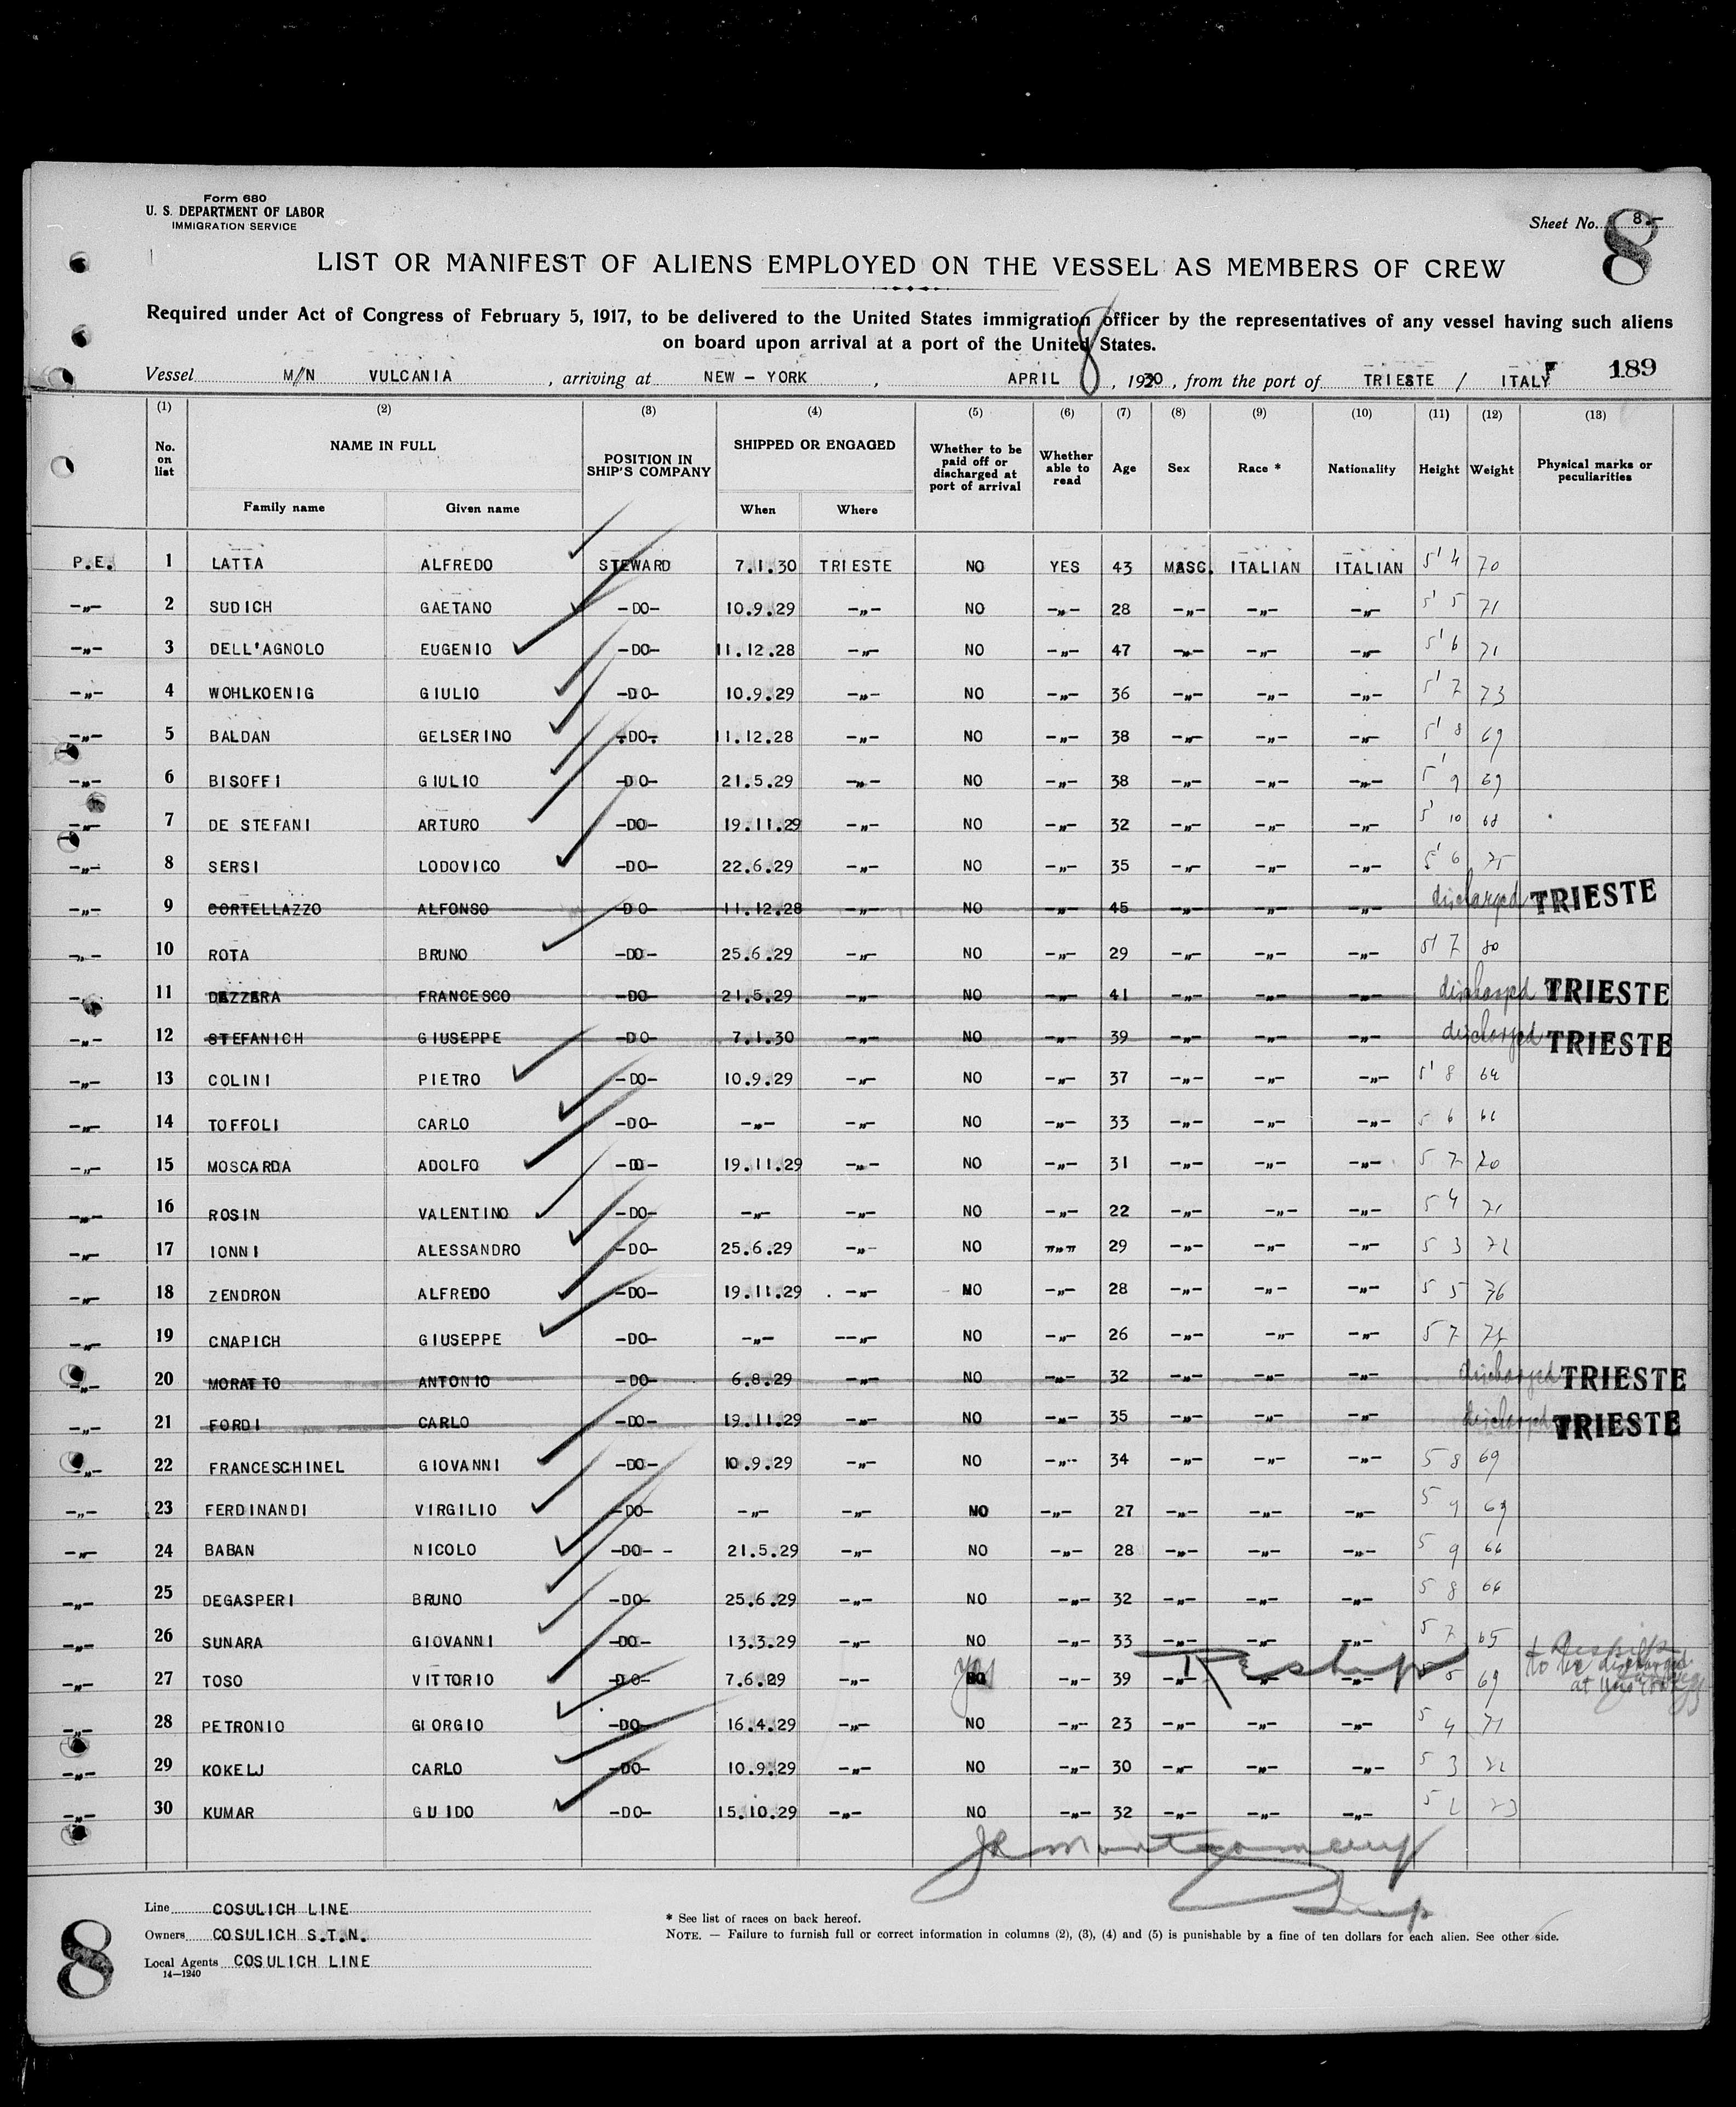 Form 680
U. S. DEPARTMENT OF LABOR
IMMIGRATION SERVICE
Sheet No. 8.-
8
LIST OR MANIFEST OF ALIENS EMPLOYED ON THE VESSEL AS MEMBERS OF CREW
Required under Act of Congress of February 5, 1917, to be delivered to the United States immigration officer by the representatives of any vessel having such aliens
on board upon arrival at a port of the United States.
Vessel M/N VULCANIA , arriving at NEW - YORK , APRIL 8 , 1930 , from the port of TRIESTE / ITALY 189
(1) (2) (3) (4) (5) (6) (7) (8) (9) (10) (11) (12) (13)
No. on list NAME IN FULL POSITION IN SHIP'S COMPANY SHIPPED OR ENGAGED Whether to be paid off or discharged at port of arrival Whether able to read Age Sex Race * Nationality Height Weight Physical marks or peculiarities
Family name Given name When Where
P.E. 1 LATTA ALFREDO STEWARD 7.1.30 TRIESTE NO YES 43 MASC. ITALIAN ITALIAN 5' 4 70
-"- 2 SUDICH GAETANO -DO- 10.9.29 -"- NO -"- 28 -"- -"- -"- 5' 5 71
-"- 3 DELL'AGNOLO EUGENIO -DO- 11.12.28 -"- NO -"- 47 -"- -"- -"- 5' 6 71
-"- 4 WOHLKOENIG GIULIO -DO- 10.9.29 -"- NO -"- 36 -"- -"- -"- 5' 7 73
-"- 5 BALDAN GELSERINO -DO- 11.12.28 -"- NO -"- 38 -"- -"- -"- 5' 8 69
-"- 6 BISOFFI GIULIO -DO- 21.5.29 -"- NO -"- 38 -"- -"- -"- 5' 9 69
-"- 7 DE STEFANI ARTURO -DO- 19.11.29 -"- NO -"- 32 -"- -"- -"- 5' 10 68
-"- 8 SERSI LODOVICO -DO- 22.6.29 -"- NO -"- 35 -"- -"- -"- 5' 6 75
-"- 9 CORTELLAZZO ALFONSO -DO- 11.12.28 -"- NO -"- 45 -"- -"- -"- discharged TRIESTE
-"- 10 ROTA BRUNO -DO- 25.6.29 -"- NO -"- 29 -"- -"- -"- 5' 7 80
-"- 11 DEZZERA FRANCESCO -DO- 21.5.29 -"- NO -"- 41 -"- -"- -"- discharged TRIESTE
-"- 12 STEFANICH GIUSEPPE -DO- 7.1.30 -"- NO -"- 39 -"- -"- -"- discharged TRIESTE
-"- 13 COLINI PIETRO -DO- 10.9.29 -"- NO -"- 37 -"- -"- -"- 5' 8 64
-"- 14 TOFFOLI CARLO -DO- -"- -"- NO -"- 33 -"- -"- -"- 5 6 66
-"- 15 MOSCARDA ADOLFO -DO- 19.11.29 -"- NO -"- 31 -"- -"- -"- 5 7 70
-"- 16 ROSIN VALENTINO -DO- -"- -"- NO -"- 22 -"- -"- -"- 5 4 71
-"- 17 IONNI ALESSANDRO -DO- 25.6.29 -"- NO """ 29 -"- -"- -"- 5 3 72
-"- 18 ZENDRON ALFREDO -DO- 19.11.29 -"- NO -"- 28 -"- -"- -"- 5 5 76
-"- 19 CNAPICH GIUSEPPE -DO- -"- --"- NO -"- 26 -"- -"- -"- 5 7
-"- 20 MORATTO ANTONIO -DO- 6.8.29 -"- NO -"- 32 -"- -"- -"- discharged TRIESTE
-"- 21 FORDI CARLO -DO- 19.11.29 -"- NO -"- 35 -"- -"- -"- discharged TRIESTE
-"- 22 FRANCESCHINEL GIOVANNI -DO- 10.9.29 -"- NO -"- 34 -"- -"- -"- 5 8 69
-"- 23 FERDINANDI VIRGILIO -DO- -"- -"- NO -"- 27 -"- -"- -"- 5 9 69
-"- 24 BABAN NICOLO -DO- - 21.5.29 -"- NO -"- 28 -"- -"- -"- 5 9 66
-"- 25 DEGASPERI BRUNO -DO- 25.6.29 -"- NO -"- 32 -"- -"- -"- 5 8 66
-"- 26 SUNARA GIOVANNI -DO- 13.3.29 -"- NO -"- 33 -"- -"- -"- 5 7 65
-"- 27 TOSO VITTORIO -DO- 7.6.29 -"- yes NO -"- 39 -"- -"- -"- Reship 5 5 69 to be discharged at
-"- 28 PETRONIO GIORGIO -DO- 16.4.29 -"- NO -"- 23 -"- -"- -"- 5 4 71
-"- 29 KOKELJ CARLO -DO- 10.9.29 -"- NO -"- 30 -"- -"- -"- 5 3
-"- 30 KUMAR GUIDO -DO- 15.10.29 -"- NO -"- 32 -"- -"- -"- 5
JR Montgomery
Insp
Line COSULICH LINE
Owners COSULICH S.T.N.
Local Agents COSULICH LINE
14-1240
8
* See list of races on back hereof.
NOTE. — Failure to furnish full or correct information in columns (2), (3), (4) and (5) is punishable by a fine of ten dollars for each alien. See other side.